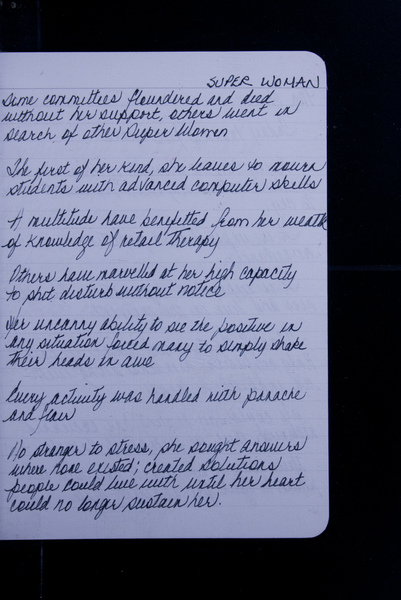 SUPER WOMAN
Some committees floundered and died
without her support, others went in
search of other Super Women
The first of her kind, she leaves to mourn
students with advanced computer skills
A multitude have benefitted from her wealth
of knowledge of retail therapy
Others have marvelled at her high capacity
to shit disturb without notice
Her uncanny ability to see the positive in
any situation forced many to simply shake
their heads in awe
Every activity was handled with panache
and flair
No stranger to stress, she sought answers
where none existed; created solutions
people could live with until her heart
could no longer sustain her.